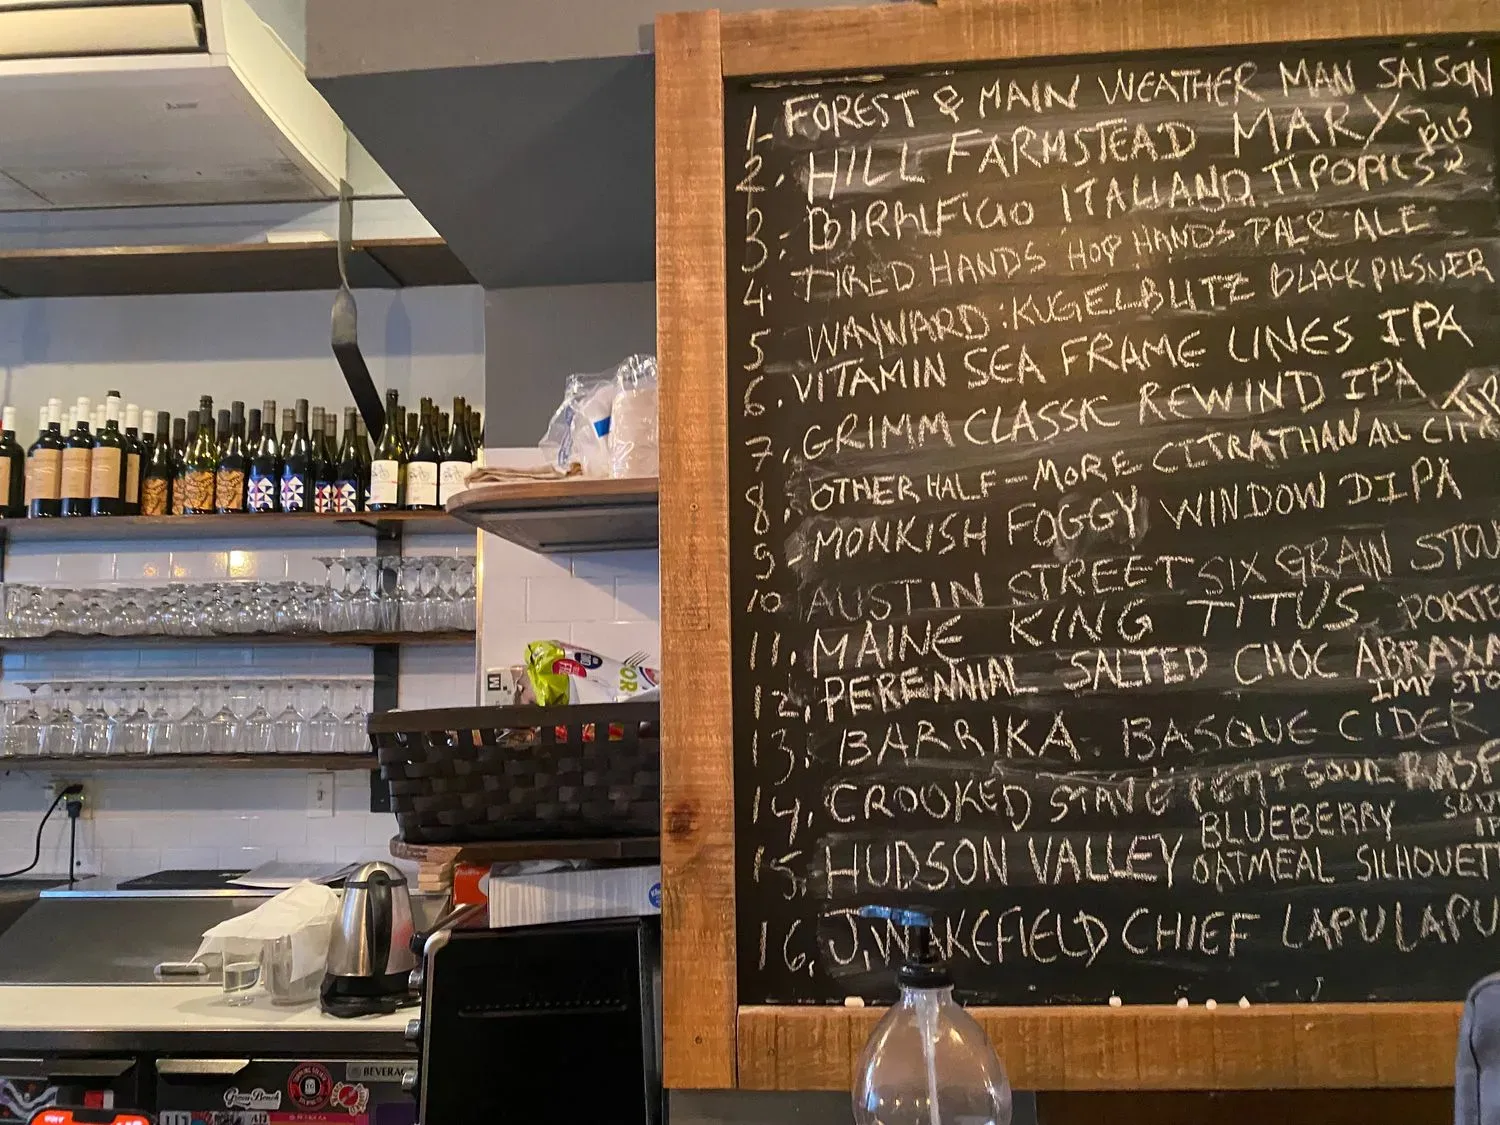 1. FOREST & MAIN WEATHER MAN SAISON
2. HILL FARMSTEAD MARY PILS
3. BIRRIFICIO ITALIANO TIPOPILS
4. TIRED HANDS HOP HANDS PALE ALE
5 WAYWARD: KUGELBLITZ BLACK PILSNER
6. VITAMIN SEA FRAME LINES IPA
7. GRIMM CLASSIC REWIND IPA
8. OTHER HALF - MORE CITRA THAN ALL CITRA
9 MONKISH FOGGY WINDOW DIPA
10 AUSTIN STREET SIX GRAIN STOU
11. MAINE KING TITUS PORTE
12. PERENNIAL SALTED CHOC ABRAXA
IMP STO
13. BARRIKA BASQUE CIDER
14. CROOKED STAVE PETIT SOUR RASP
BLUEBERRY
15. HUDSON VALLEY OATMEAL SILHOUETT
16. J. WAKEFIELD CHIEF LAPU LAPU
BEVERAG